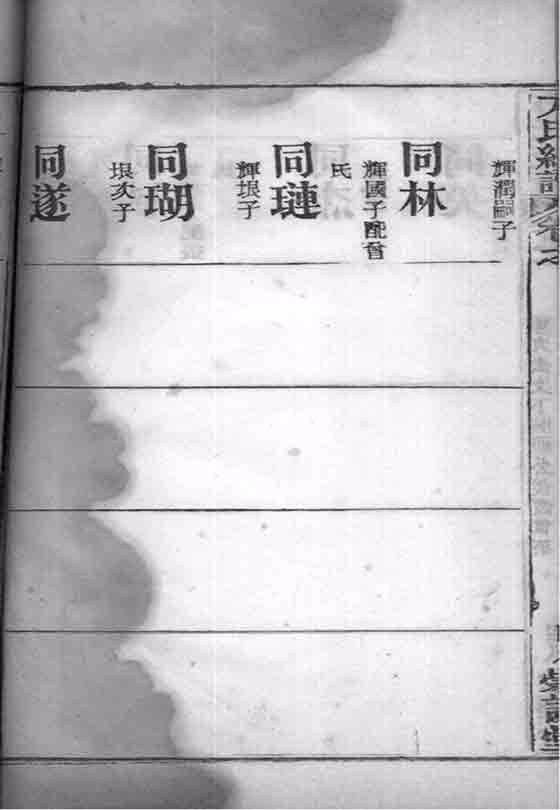 輝潤嗣子
同林
輝國子配曾
氏
同璉
輝垠子
同瑚
垠次子
同遂